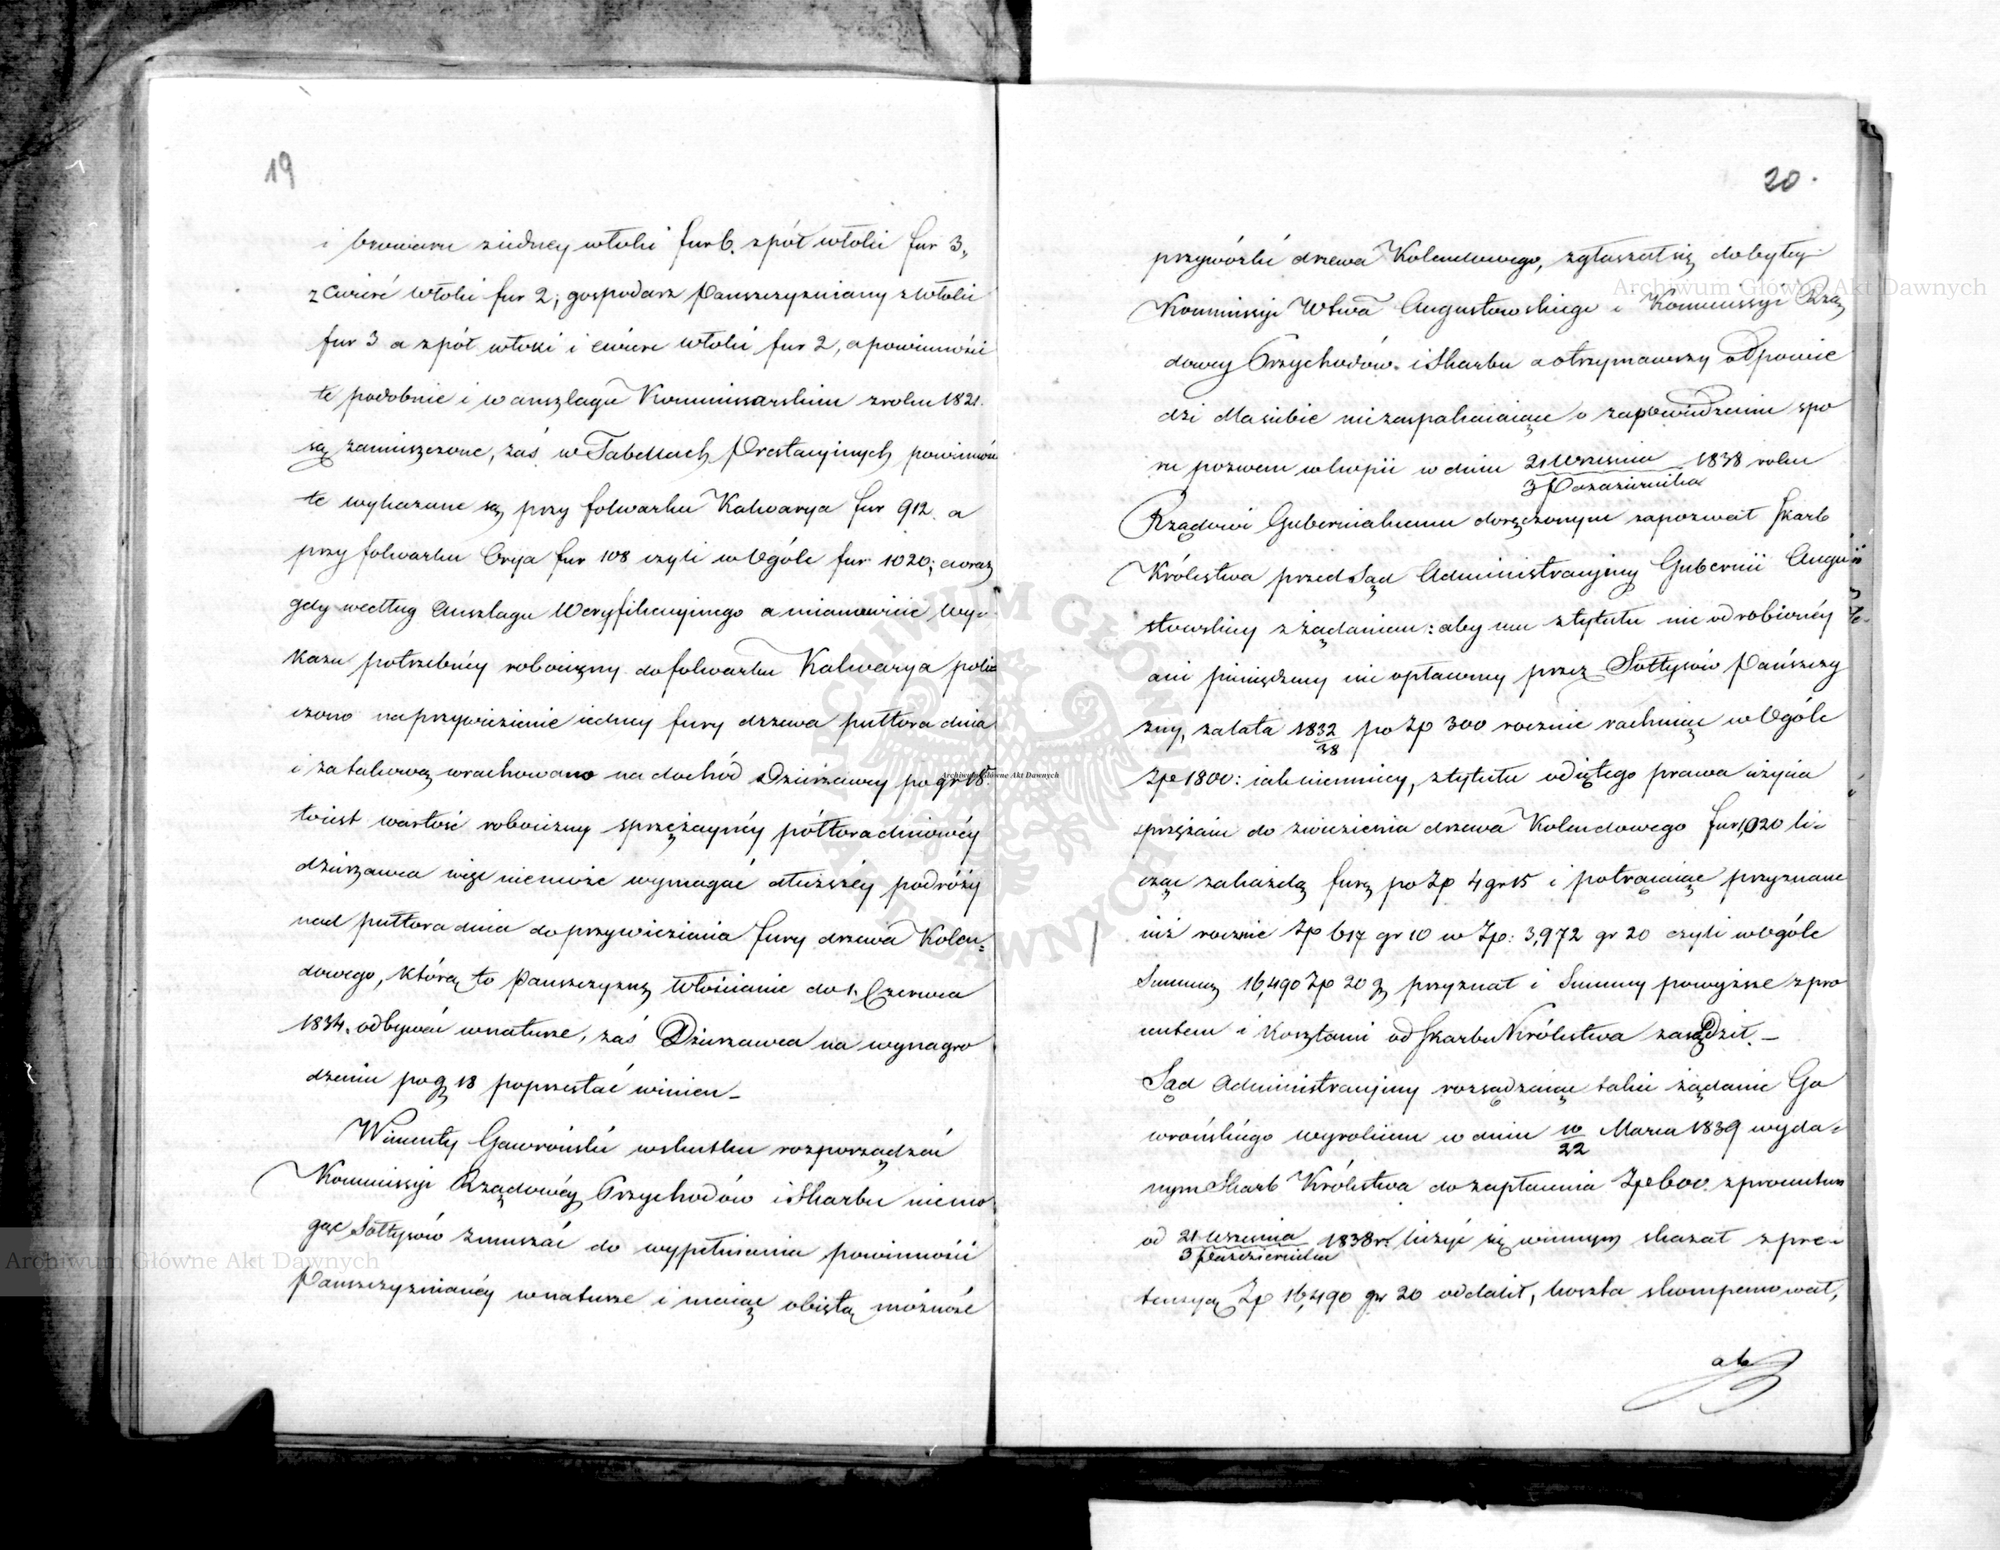 19
i browaru z iedney włoki fur 6. z pół włoki fur 3,
z ćwierć włoki fur 2; gospodarz Pańszczyzniany z włoki
fur 3 a z pół włoki i ćwierć włoki fur 2, a powinności
te podobnie i w anszlagu Kommissarskim z roku 1821.
są zamieszczone, zaś w Tabellach Prestacyinych powinnoś
te wykazane są przy folwarku Kalwarya fur 912. a
przy folwarku Orya fur 108 czyli w Ogóle fur 1020; a wraz
gdy według Anszlagu Weryfikacyinego a mianowicie Wy-
kazu potrzebnéy robocizny do folwarku Kalwarya poli=
czono na przywiezienie iedney fury drzewa puttora dnia
i za takową wrachowano na dochód Dzierżawcy po gr 18.
toiest wartość robocizny sprzężaynéy półtora dniowéy
dzierżawca więc niemoże wymagać dłuższéy podróży
nad puttora dnia do przywiezienia fury drzewa Kolen=
dowego, którą to Pańszczyznę Włościanie do 1. Czerwca
1834. odbywać w naturze, zaś Dzierżawca na wynagro
dzeniu po g 18 poprzestać winien _
Wincenty Gawroński w skutku rozporządzeń
Kommissyi Rządowéy Przychodów i Skarbu niemo
gąc Sołtysów zmuszać do wypełniania powinności
Pańszczyznianéy w naturze i maiąc obiętą możność
20.
przywózki drzewa Kolendowego, zgłaszał się do byłey
Kommissyi Wtwa Augustowskiego i Kommissyi Rzą
dowey Przychodów i Skarbu a otrzymawszy odpowie
dzi dla siebie niezaspakaiaiące o zapowiedzeniu spo
ru pozwem w kopii w dniu 21 Września 1838 roku
3 Pazdziernika
Rządowi Gubernialnemu doręczonym zapozwał Skarb
Królestwa przed Sąd Administracyjny Gubernii Augu
stowskiey z żądaniem: aby mu z tytułu nie odrobionéy
ani pieniędzmy nie opłaconey przez Sołtysów Pańszczy
zny, za lata 1832 po Zp 300 rocznie rachuiąc w Ogóle
38
Zp 1800: iak niemniey, z tytułu odiętego prawa użycia
sprzężaiu do zwiezienia drzewa Kolendowego fur 1,020 li=
cząc za każdą furę po Zp 4 gr 15 i potrącaiąc przyznane
iuż rocznie Zp 617 gr 10 w Zp: 3,972 gr 20 czyli w Ogóle
Summę 16,490 Zp 20 g przyznał i Summy powyższe z pro
centem i kosztami od Skarbu Królestwa zasądził. _
Sąd Administracyjny rozsądzaiąc takie żądanie Ga
wrońskiego wyrokiem w dniu 10 Marca 1839 wyda=
22
nym Skarb Królestwa do zapłacenia Zp 600. z procentem
od 21 Września 1838 r. liczyć się winnym skazał z pre=
3 Pazdziernika
tensyą Zp 16,490 gr 20 oddalił, koszta skompensował,
ale
Archiwum Główne Akt Dawnych
Archiwum Główne Akt Dawnych
Archiwum Główne Akt Dawnych
ARCHIWUM GŁÓWNE AKT DAWNYCH